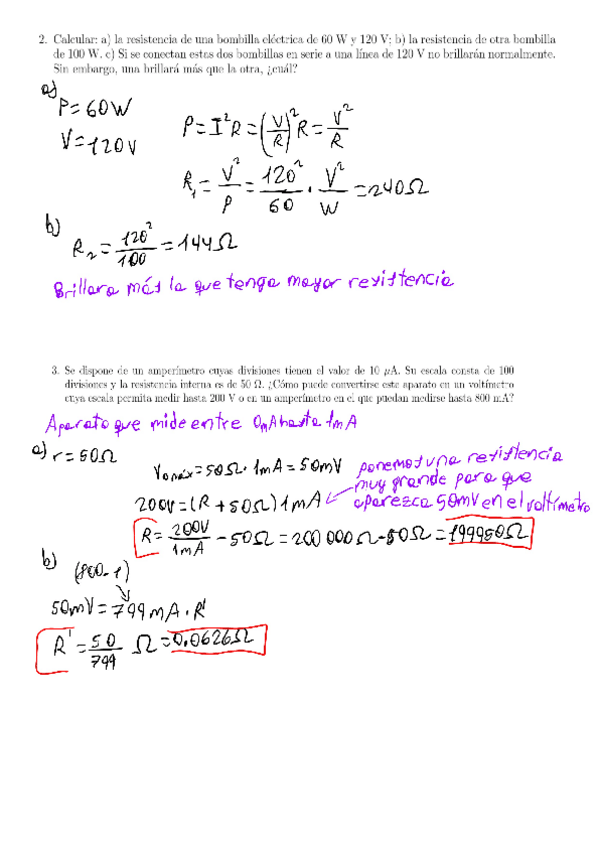 2. Calcular: a) la resistencia de una bombilla eléctrica de 60 W y 120 V; b) la resistencia de otra bombilla
de 100 W. c) Si se conectan estas dos bombillas en serie a una línea de 120 V no brillarán normalmente.
Sin embargo, una brillará más que la otra, ¿cuál?
a)
P=60W
V=120V
P=I²R=(V/R)²R=V²/R
R₁=V²/P=120²/60·V²/W=240Ω
b)
R₂=120²/100=144Ω
Brillara más la que tenga mayor resistencia
3. Se dispone de un amperímetro cuyas divisiones tienen el valor de 10 μA. Su escala consta de 100
divisiones y la resistencia interna es de 50 Ω. ¿Cómo puede convertirse este aparato en un voltímetro
cuya escala permita medir hasta 200 V o en un amperímetro en el que puedan medirse hasta 800 mA?
Aparato que mide entre 0mA hasta 1mA
a) r=50Ω
Vomáx=50Ω·1mA=50mV
ponemos una resistencia
muy grande para que
aparezca 50mV en el voltímetro
200V=(R+50Ω)1mA
R=200V/1mA-50Ω=200000Ω-50Ω=199950Ω
b)
(800-1)
50mV=799mA·R'
R'=50/799 Ω=0,0626Ω